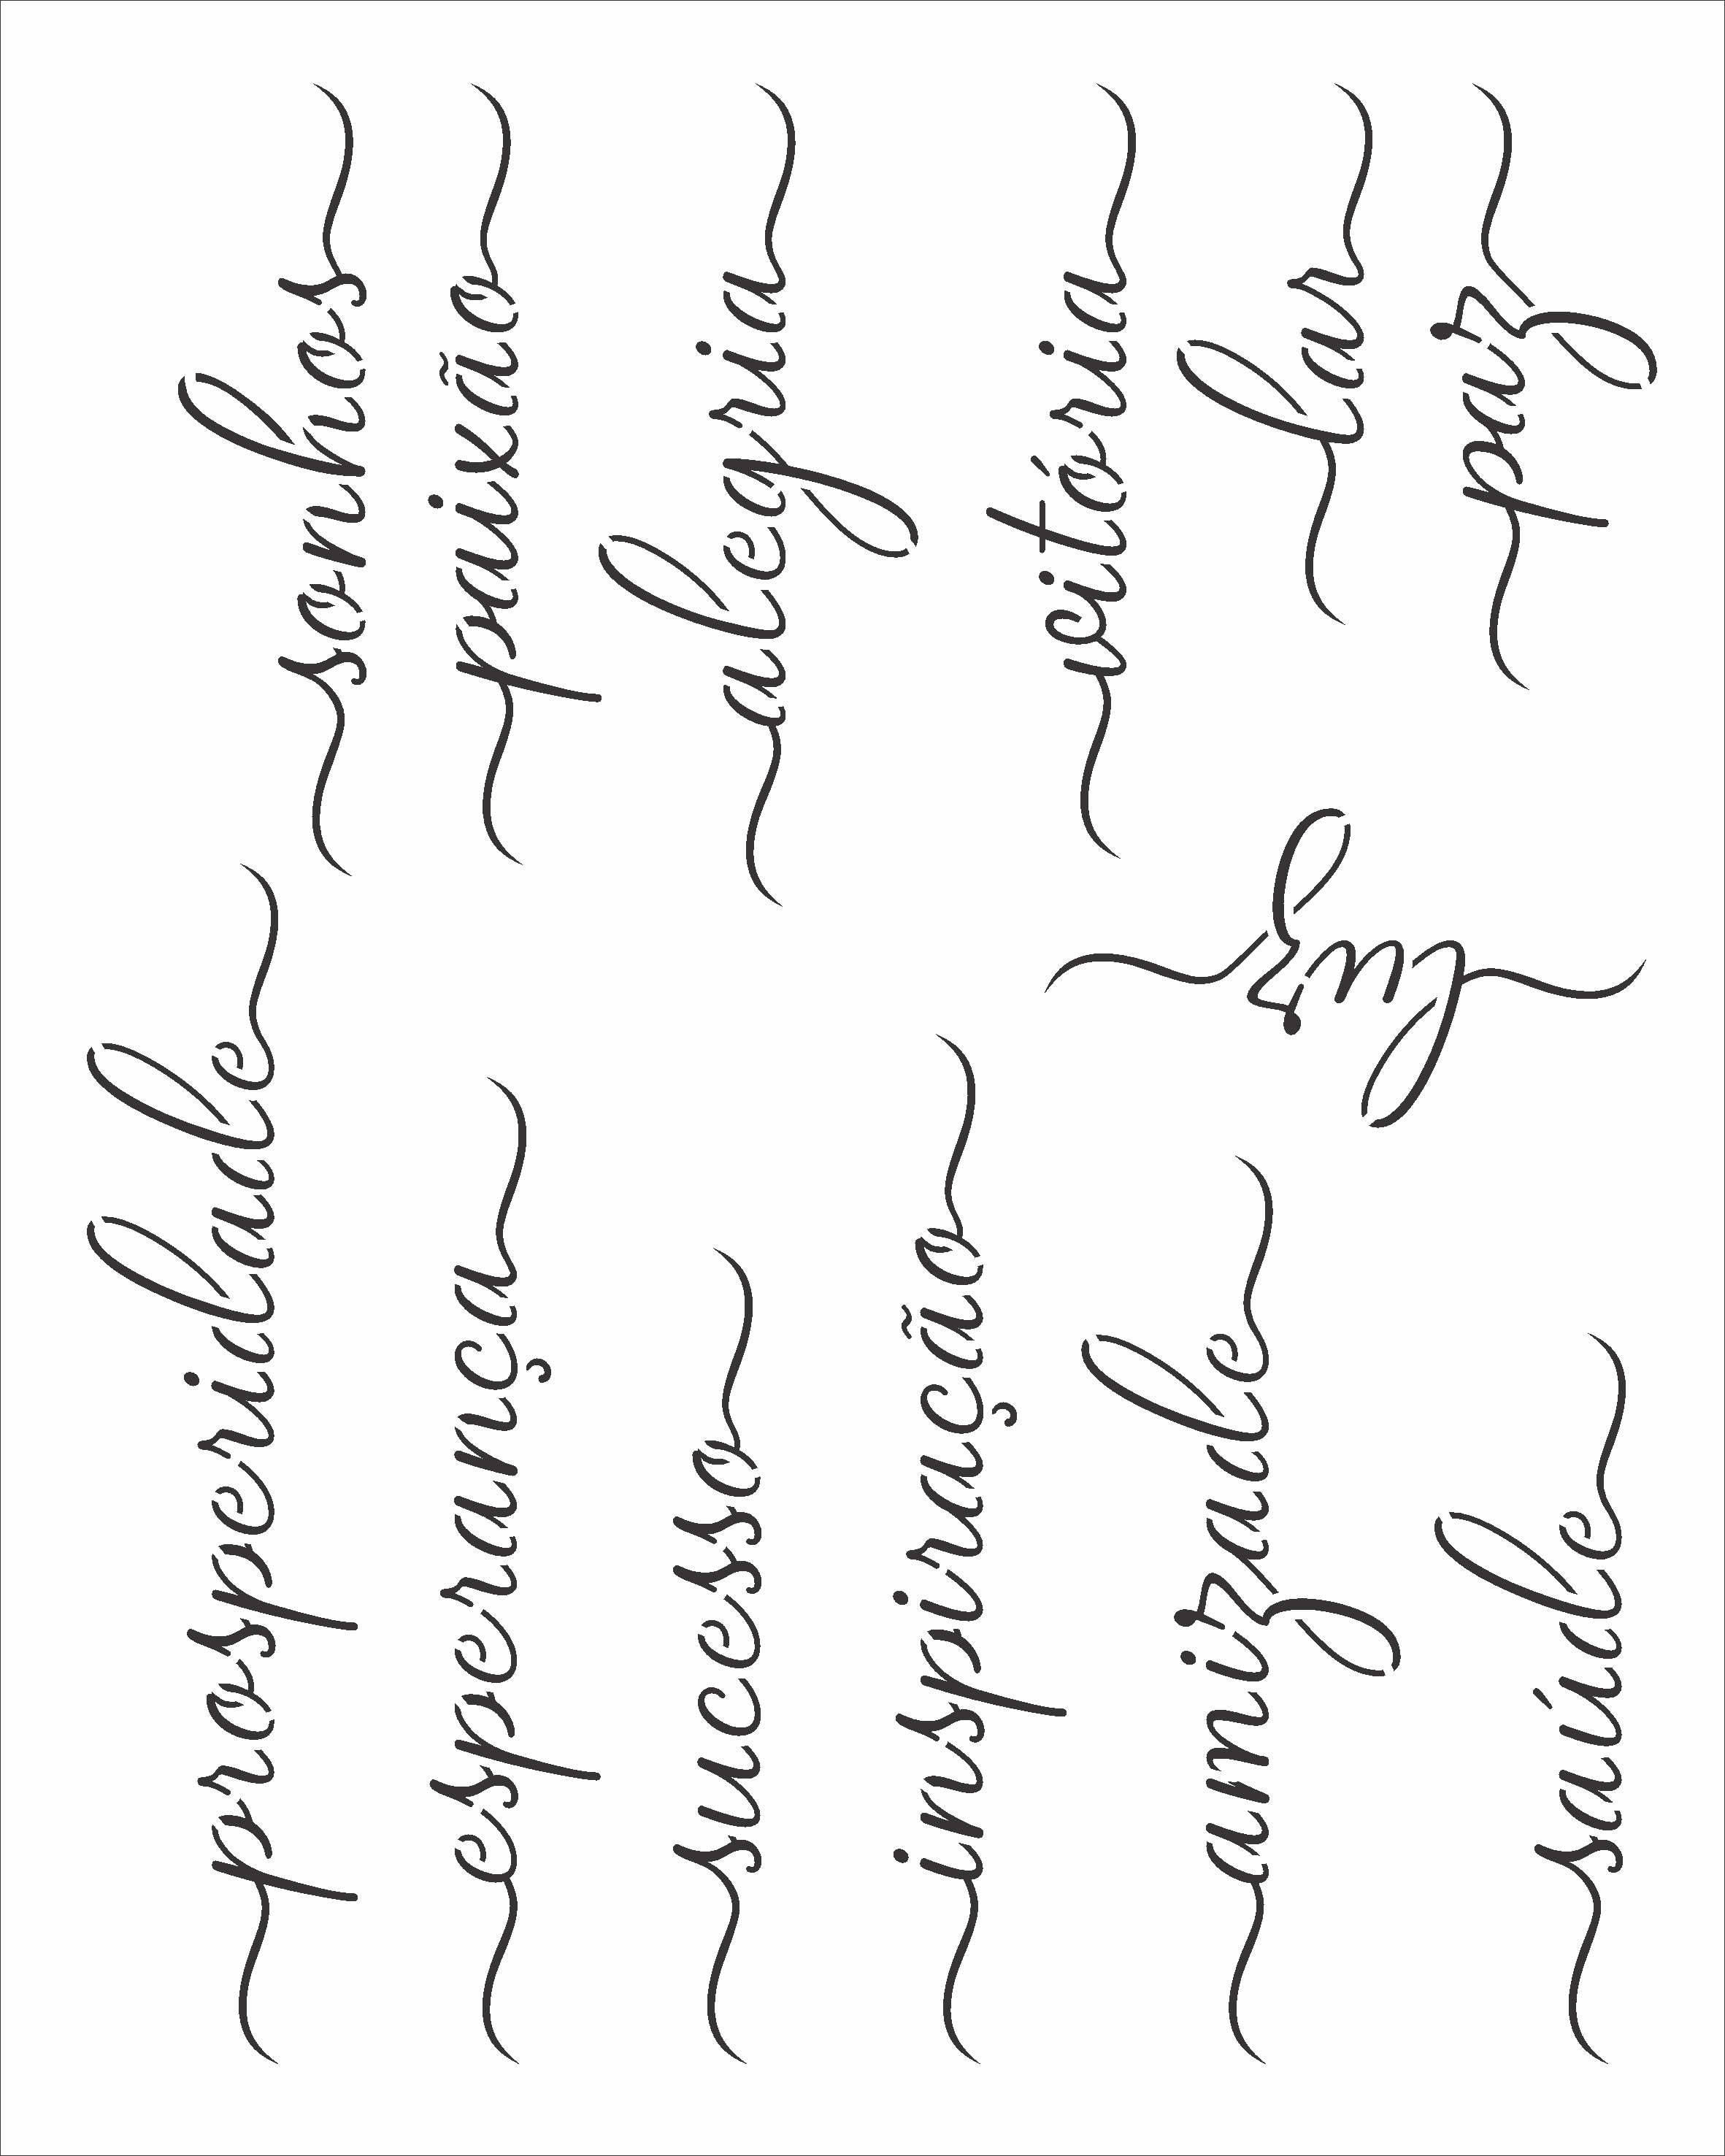 prosperidade
sonhos
esperança
paixão
sucesso
alegria
inspiração
vitória
amizade
lar
luz
saúde
paz